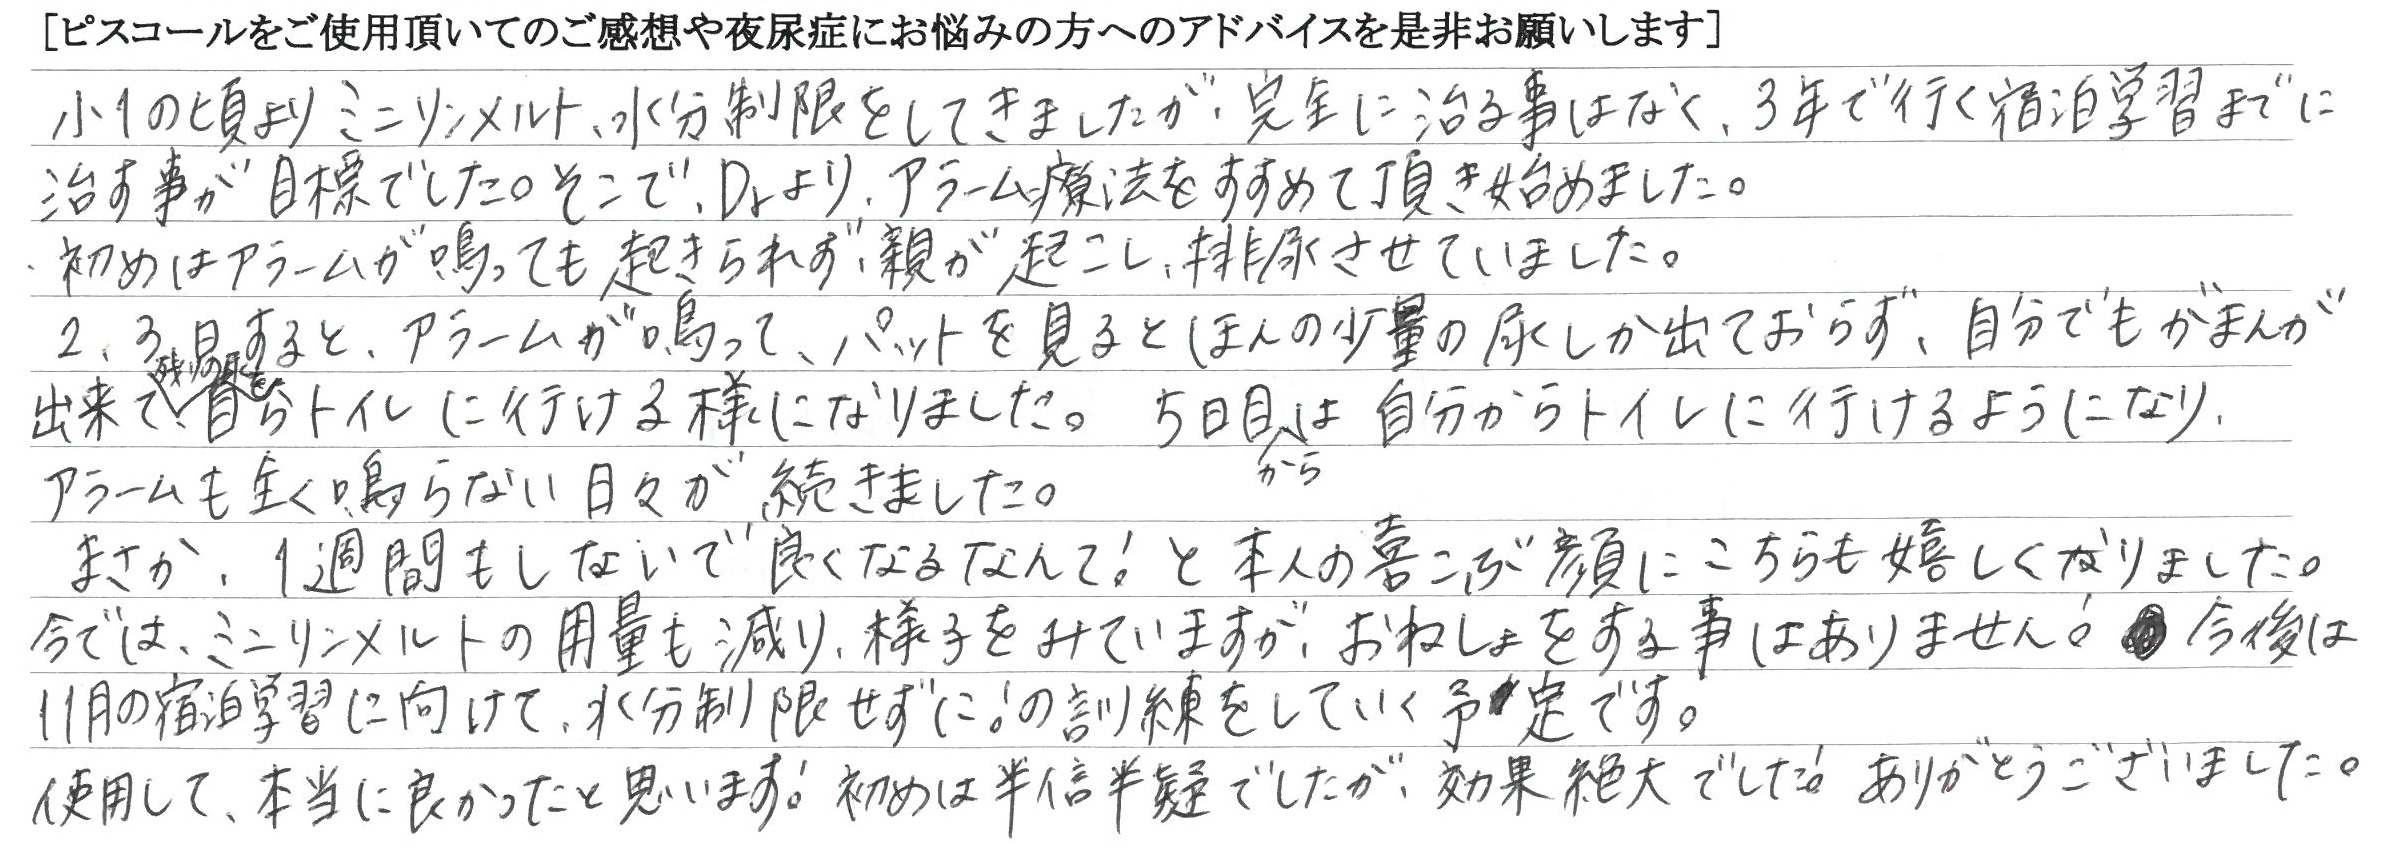 [ピスコールをご使用頂いてのご感想や夜尿症にお悩みの方へのアドバイスを是非お願いします]
小1の頃よりミニリンメルト、水分制限をしてきましたが、完全に治る事はなく、3年で行く宿泊学習までに
治す事が目標でした。そこで、Drより、アラーム療法をすすめて頂き始めました。
初めはアラームが鳴っても起きられず、親が起こし、排尿させていました。
2、3日すると、アラームが鳴って、パットを見るとほんの少量の尿しか出ておらず、自分でもがまんが
出来て、残りの尿を自らトイレに行ける様になりました。 5日目からは自分からトイレに行けるようになり、
アラームも全く鳴らない日々が続きました。
まさか、1週間もしないで良くなるなんて!と本人の喜こぶ顔にこちらも嬉しくなりました。
今では、ミニリンメルトの用量も減り、様子をみていますが、おねしょをする事はありません! 今後は
11月の宿泊学習に向けて、水分制限せずに!の訓練をしていく予定です。
使用して、本当に良かったと思います!初めは半信半疑でしたが、効果絶大でした!ありがとうございました。